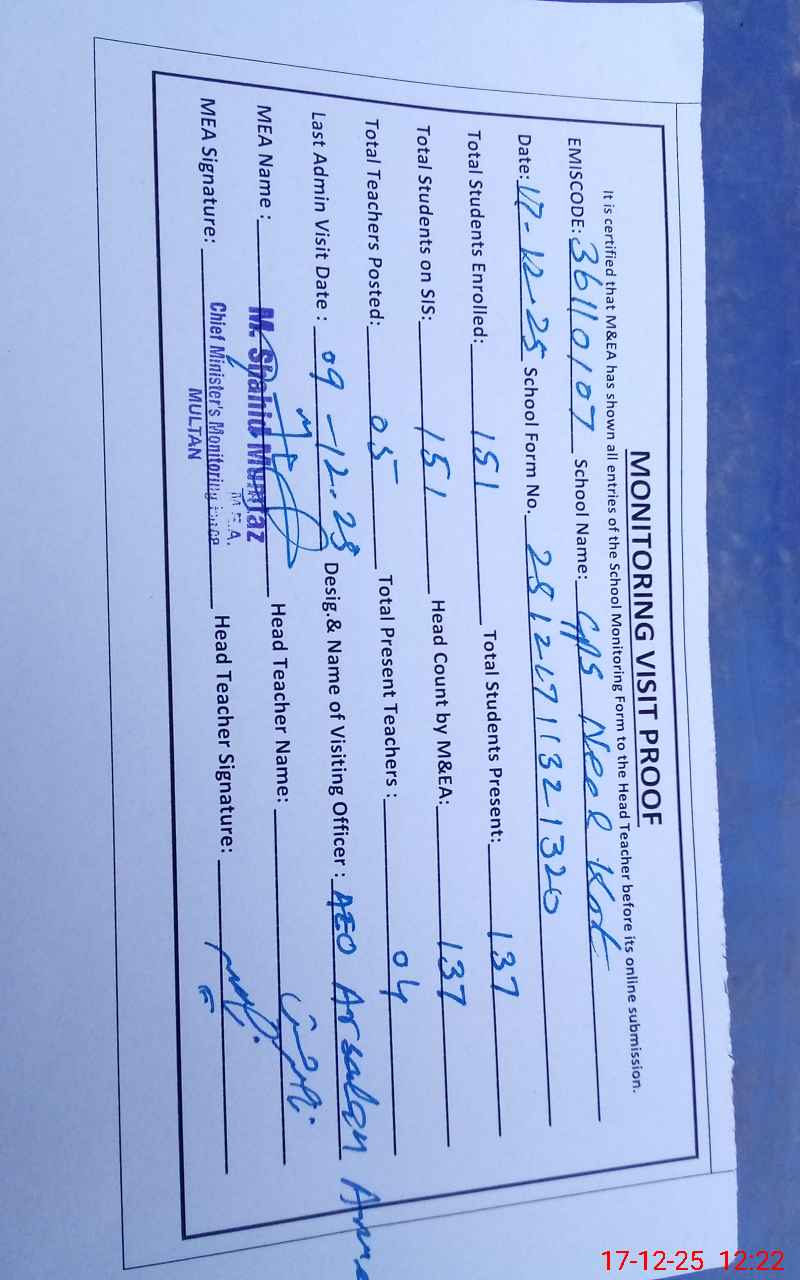 MONITORING VISIT PROOF
It is certified that M&EA has shown all entries of the School Monitoring Form to the Head Teacher before its online submission.
EMISCODE: 36110107 School Name: GPS Neel Kot
Date: 17-12-25 School Form No. 25121711321320
Total Students Enrolled: 151 Total Students Present: 137
Total Students on SIS: 151 Head Count by M&EA: 137
Total Teachers Posted: 05 Total Present Teachers : 04
Last Admin Visit Date : 09-12-25 Desig.& Name of Visiting Officer : AEO Arsalan
MEA Name : M. Shahid Mumtaz Head Teacher Name:
M.E.A.
MEA Signature: Chief Minister's Monitoring Force Head Teacher Signature:
MULTAN
17-12-25 12:22